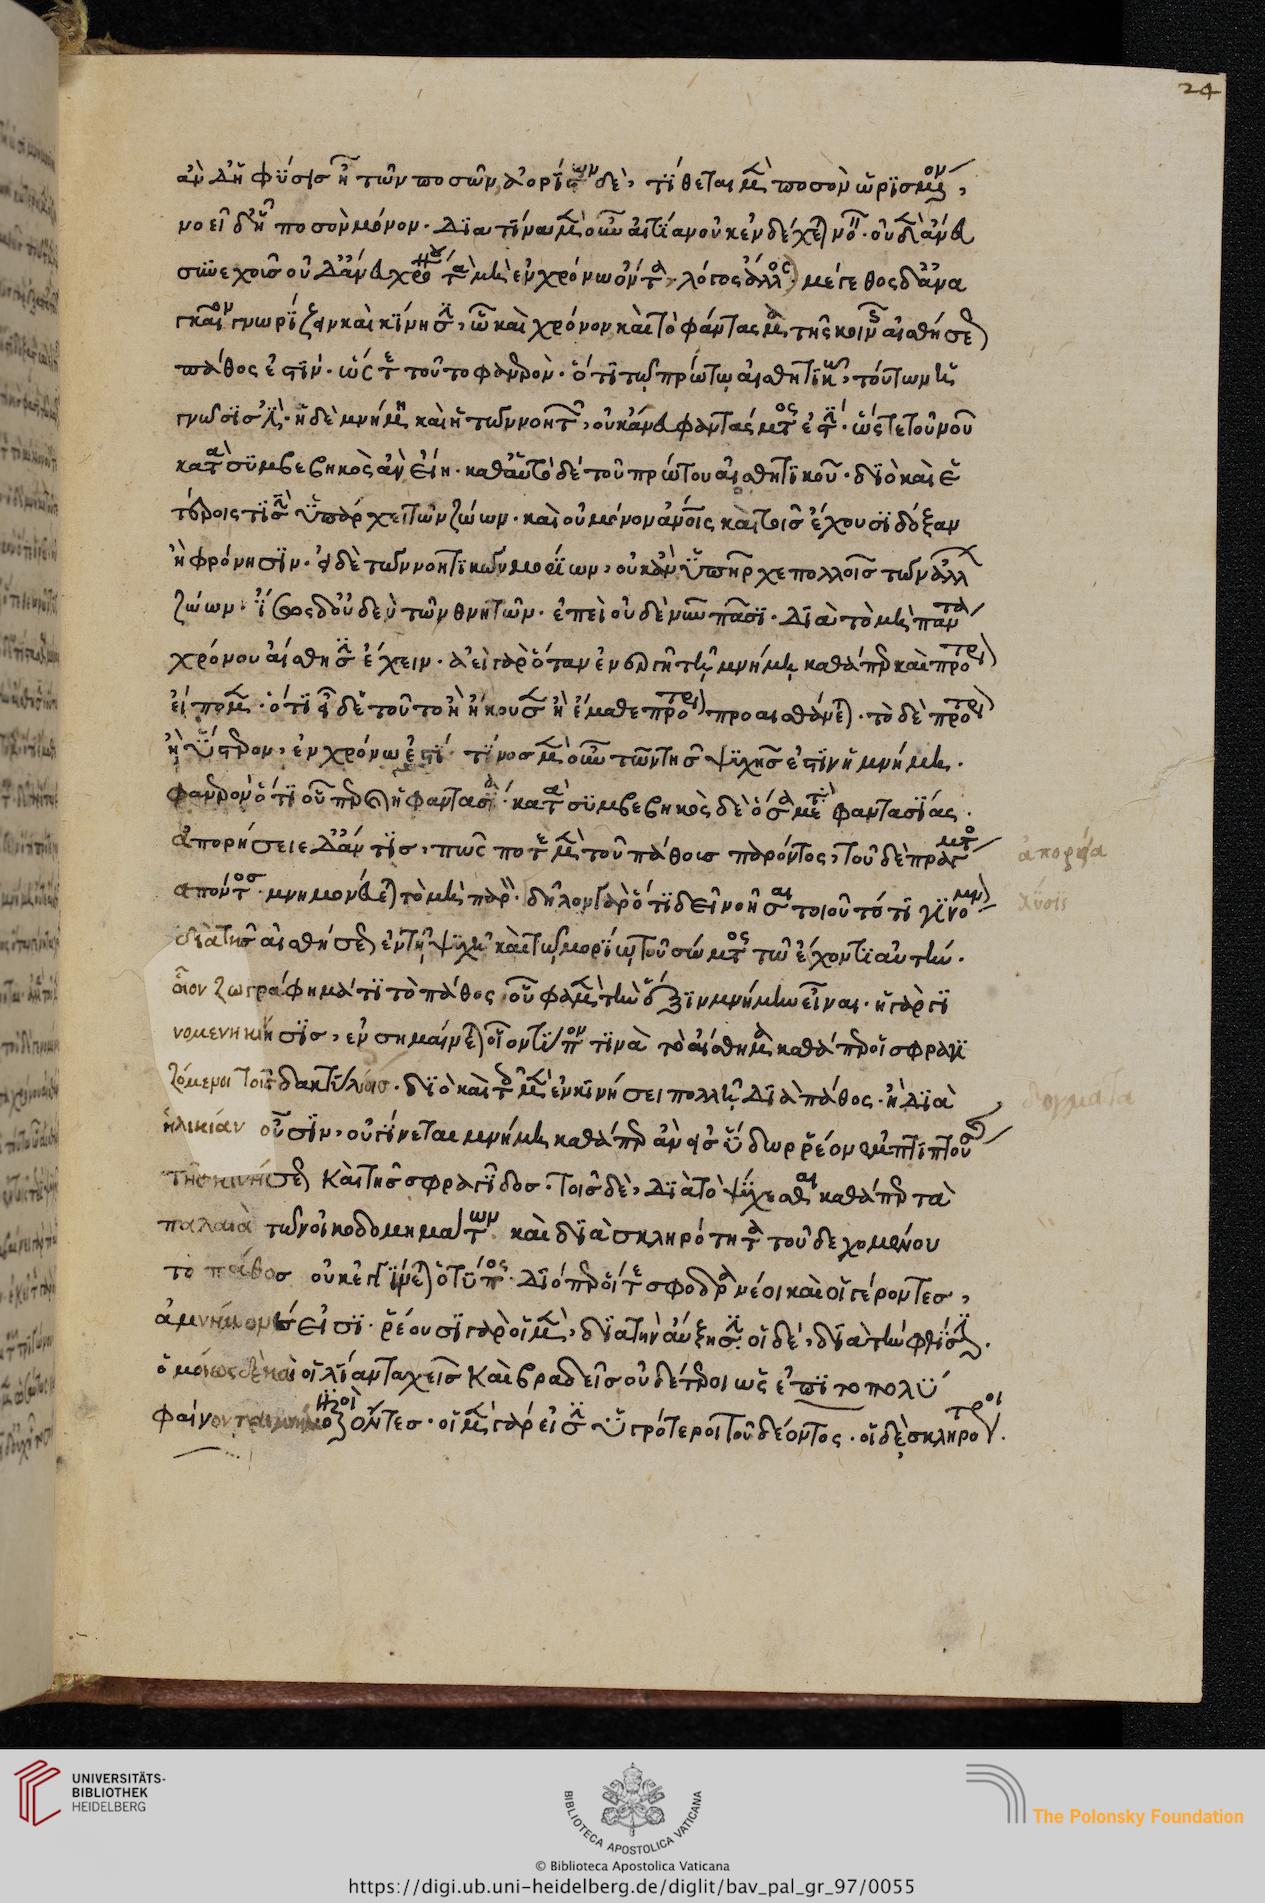 24
ἂν δ' ἡ φύσις ᾖ τῶν ποσῶν ἀορίστων δὲ, τίθεται μὲν ποσὸν ὡρισμένον,
νοεῖ δ' ᾗ ποσὸν μόνον. διὰ τίνα μὲν οὖν αἰτίαν οὐκ ἐνδέχεται νοεῖν οὐδὲν ἄνευ
συνεχοῦς οὐδ' ἄνευ χρόνου τὰ μὴ ἐν χρόνῳ ὄντα, λόγος ἄλλος. μέγεθος δ' ἀναγκαῖον γνωρίζειν καὶ κίνησιν, ᾧ καὶ χρόνον καὶ τὸ φάντασμα τῆς κοινῆς αἰσθήσεως
πάθος ἐστίν. ὥστε τοῦτο φανερὸν. ὅτι τῷ πρώτῳ αἰσθητικῷ, τούτων ἡ
γνῶσίς ἐστι. ἡ δὲ μνήμη καὶ ἡ τῶν νοητῶν, οὐκ ἄνευ φαντάσματός ἐστιν. ὥστε τοῦ νοῦ
κατὰ συμβεβηκὸς ἂν εἴη. καθ' αὑτὸ δὲ τοῦ πρώτου αἰσθητικοῦ. διὸ καὶ ἑ
τέροις τισὶν ὑπάρχει τῶν ζώων. καὶ οὐ μόνον ἀνθρώποις καὶ τοῖς ἔχουσι δόξαν
ἢ φρόνησιν. εἰ δὲ τῶν νοητικῶν μορίων, οὐκ ἂν ὑπῆρχε πολλοῖς τῶν ἄλλων
ζώων. ἴσως δ' οὐδενὶ τῶν θνητῶν. ἐπεὶ οὐδὲ νῦν πᾶσι. διὰ τὸ μὴ πάντα
χρόνου αἴσθησιν ἔχειν. ἀεὶ γὰρ ὅταν ἐνεργῇ τῇ μνήμῃ καθάπερ καὶ πρότερον
εἴπομεν. ὅτι εἶδε τοῦτο ἢ ἤκουσεν ἢ ἔμαθε πρότερον προσαισθάνεται. τὸ δὲ πρότερον
ἢ ὕστερον, ἐν χρόνῳ ἐστί. τίνος μὲν οὖν τῶν τῆς ψυχῆς ἐστιν ἡ μνήμη.
φανερὸν ὅτι οὗπερ καὶ ἡ φαντασία. κατὰ συμβεβηκὸς δὲ ὅσα μετὰ φαντασίας.
ἀπορήσειε δ' ἄν τις, πῶς ποτε μὲν τοῦ πάθους παρόντος, τοῦ δὲ πράγματος
ἀπορία
ἀπόντος. μνημονεύεται τὸ μὴ παρόν. δῆλον γὰρ ὅτι δεῖ νοῆσαι τοιοῦτό τι γινόμενον
λύσις
διὰ τῆς αἰσθήσεως ἐν τῇ ψυχῇ καὶ τῷ μορίῳ τοῦ σώματος τῷ ἔχοντι αὐτήν.
οἷον ζωγράφημά τι τὸ πάθος οὗ φαμὲν τὴν ἕξιν μνήμην εἶναι. ἡ γὰρ γι
νομένη κίνησις, ἐνσημαίνεται οἷον τύπον τινὰ τὸ αἴσθημα καθάπερ οἱ σφραγι
ζόμενοι τοῖς δακτυλίοις. διὸ καὶ τοῖς μὲν ἐν κινήσει πολλῇ διὰ πάθος. ἢ διὰ
δόγματα
ἡλικίαν οὖσιν, οὐ γίνεται μνήμη καθάπερ ἂν εἰς ὕδωρ ῥέον ἐμπιπτούσης
τῆς κινήσεως καὶ τῆς σφραγῖδος. τοῖς δὲ, διὰ τὸ ψύχεσθαι καθάπερ τὰ
παλαιὰ τῶν οἰκοδομημάτων καὶ διὰ σκληρότητα τοῦ δεχομένου
τὸ πάθος οὐκ ἐγγίνεται ὁ τύπος. διόπερ οἵ τε σφόδρα νέοι καὶ οἱ γέροντες,
ἀμνήμονές εἰσι. ῥέουσι γὰρ οἱ μὲν, διὰ τὴν αὔξησιν. οἱ δὲ, διὰ τὴν φθίσιν.
ὁμοίως δὲ καὶ οἱ λίαν ταχεῖς καὶ βραδεῖς οὐδέτεροι ὡς ἐπὶ τὸ πολὺ
φαίνονται μνήμονες ὄντες. οἱ μὲν γάρ εἰσιν ὑγρότεροι τοῦ δέοντος. οἱ δὲ σκληρότεροι.
UNIVERSITÄTS-
BIBLIOTHEK
HEIDELBERG
BIBLIOTECA APOSTOLICA VATICANA
The Polonsky Foundation
© Biblioteca Apostolica Vaticana
https://digi.ub.uni-heidelberg.de/diglit/bav_pal_gr_97/0055